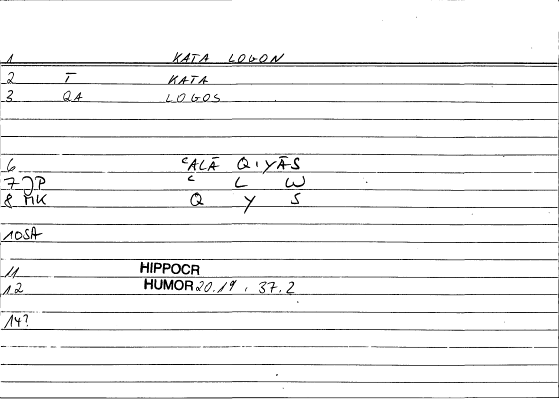 1 KATA LOGON
2 T̄ KATA
3 QA LOGOS
6 ᶜALĀ QIYĀS
7 JP ᶜ L W
8 MK Q Y S
10 SA
11 HIPPOCR
12 HUMOR 20.19, 37.2
14?